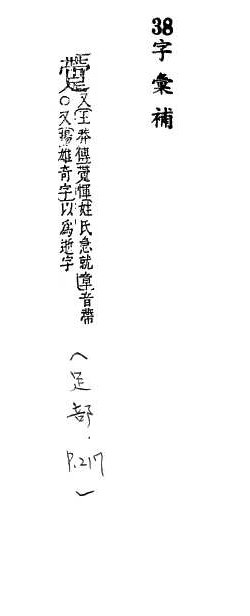 38字彙補
又王莽傳躗惲姓氏急就章音帶
○又揚雄奇字以為逝字
(足部.
P.217)